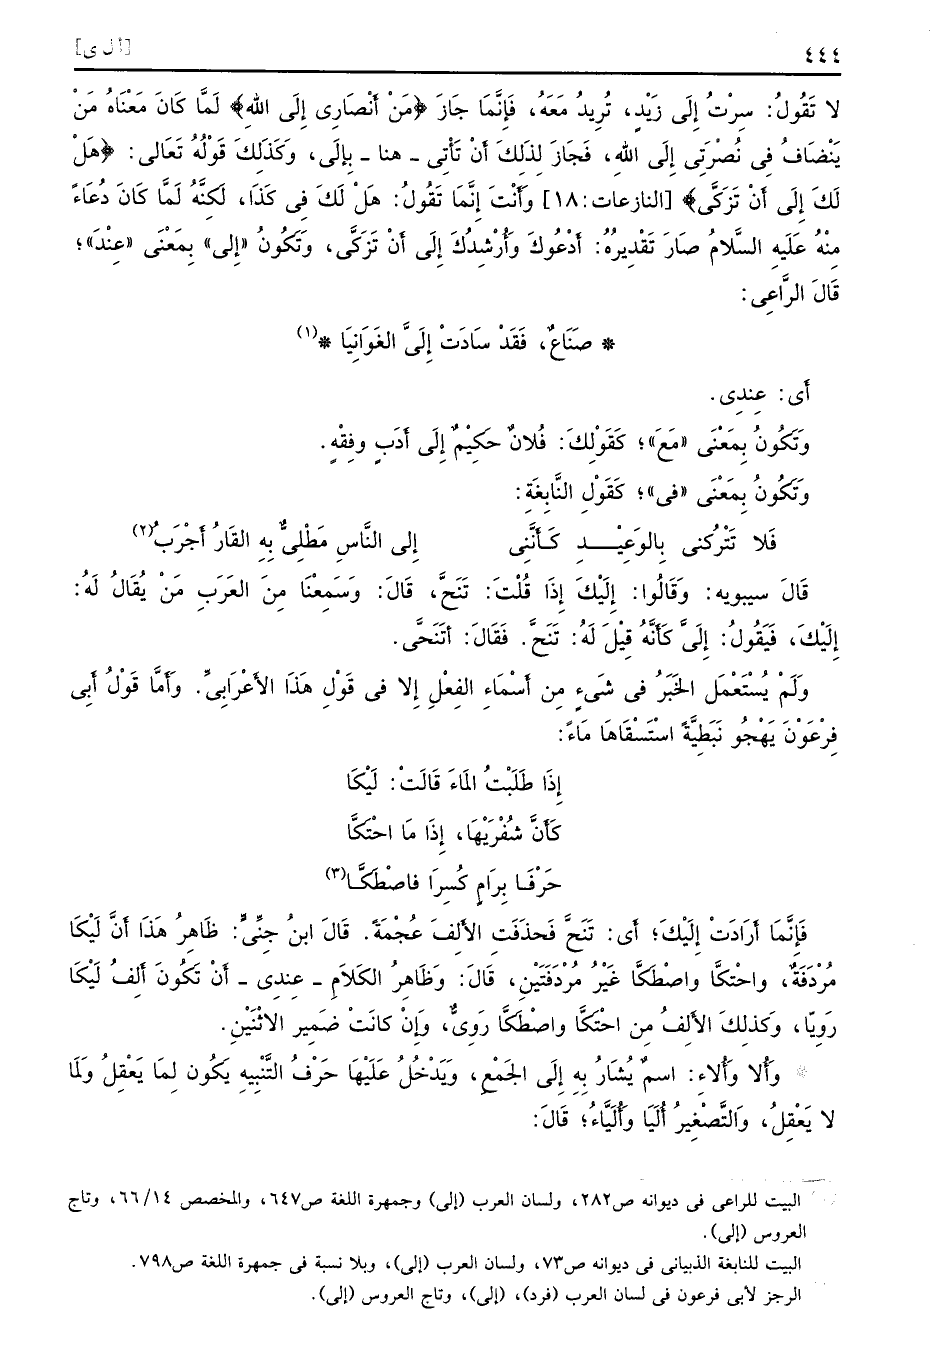 ٤٤٤ [أ ل ى]
لا تَقُولُ: سِرْتُ إِلَى زَيْدٍ، تُرِيدُ مَعَهُ، فَإِنَّمَا جَازَ ﴿مَنْ أَنْصَارِى إِلَى اللهِ﴾ لَمَّا كَانَ مَعْنَاهُ مَنْ
يَنْضَافُ فِى نُصْرَتِى إِلَى اللهِ، فَجَازَ لِذَلِكَ أَنْ تَأْتِى ـ هنا ـ بِإِلَى، وَكَذَلِكَ قَوْلُهُ تَعَالى: ﴿هَلْ
لَكَ إِلَى أَنْ تَزَكَّى﴾ [النازعات: ١٨] وَأَنْتَ إِنَّمَا تَقُولُ: هَلْ لَكَ فِى كَذَا، لَكِنَّهُ لَمَّا كَانَ دُعَاءً
مِنْهُ عَلَيهِ السَّلامُ صَارَ تَقْدِيرُهُ: أَدْعُوكَ وَأُرْشِدُكَ إِلَى أَنْ تَزَكَّى، وَتَكُونُ «إلى» بِمَعْنَى «عِنْدَ»؛
قَالَ الرَّاعِى:
* صَنَاعٌ، فَقَدْ سَادَتْ إِلَىَّ الغَوَانِيَا *(١)
أَى: عِنْدِى.
وَتَكُونُ بِمَعْنَى «مَعَ»؛ كَقَوْلِكَ: فُلانٌ حَكِيْمٌ إِلَى أَدَبٍ وفِقْهٍ.
وَتَكُونُ بِمَعْنَى «فى»؛ كَقَوْلِ النَّابِغَةِ:
فَلا تَتْرُكَنى بِالوَعِيْـــدِ كَـأَنَّنِى إِلى النَّاسِ مَطْلِىٌّ بِهِ القَارُ أَجْرَبُ(٢)
قَالَ سيبويه: وَقَالُوا: إِلَيْكَ إِذَا قُلْتَ: تَنَحَّ، قَالَ: وَسَمِعْنَا مِنَ العَرَبِ مَنْ يُقَالُ لَهُ:
إِلَيْكَ، فَيَقُولُ: إِلَىَّ كَأَنَّهُ قِيْلَ لَهُ: تَنَحَّ. فَقَالَ: أَتَنَحَّى.
وَلَمْ يُسْتَعْمَلِ الخَبَرُ فى شَىءٍ مِن أَسْمَاءِ الفِعْلِ إِلا فى قَوْلِ هَذَا الأَعْرَابِىِّ. وَأَمَّا قَوْلُ أَبِى
فِرْعَوْنَ يَهْجُو نَبَطِيَّةً اسْتَسْقَاهَا مَاءً:
إِذَا طَلَبْتُ المَاءَ قَالَتْ: لَيْكَا
كَأَنَّ شُفْرَيْهَا، إِذَا مَا احْتَكَّا
حَرْفَـا بِرَامٍ كُسِرَا فاصْطَكَّـا(٣)
فَإِنَّمَا أَرَادَتْ إِلَيْكَ؛ أى: تَنَحَّ فَحذَفَتِ الأَلِفَ عُجْمَةً. قَالَ ابنُ جِنِّىٍّ: ظَاهِرُ هَذَا أَنَّ لَيْكَا
مُرْدَفَةٌ، واحْتكَّا واصْطَكَّا غَيْرُ مُرْدَفَتَيْنِ، قَالَ: وَظَاهِرُ الكَلاَمِ ـ عِندى ـ أَنْ تَكُونَ أَلِفُ لَيْكَا
رَوِيّا، وَكذلِكَ الأَلفُ مِن احْتكَّا واصْطَكَّا رَوِىٌّ، وَإِنْ كانَتْ ضَمِيرَ الاثْنَيْنِ.
* وَأُلا وَأُلاءِ: اسمٌ يُشَارُ بِهِ إِلَى الجَمْعِ، وَيَدْخُلُ عَلَيْهَا حَرْفُ التَّنْبِيهِ يَكُون لمَا يَعْقِلُ ولَمَا
لا يَعْقِلُ، وَالتَّصْغِيرُ أُلَيَا وَأُلَيَّاءُ؛ قَالَ:
البيت للراعى فى ديوانه ص٢٨٢، ولسان العرب (إلى) وجمهرة اللغة ص٦٤٧، والمخصص ٦٦/١٤، وتاج
العروس (إلى).
البيت للنابغة الذبيانى فى ديوانه ص٧٣، ولسان العرب (إلى)، وبلا نسبة فى جمهرة اللغة ص٧٩٨.
الرجز لأبى فرعون فى لسان العرب (فرد)، (إلى)، وتاج العروس (إلى).